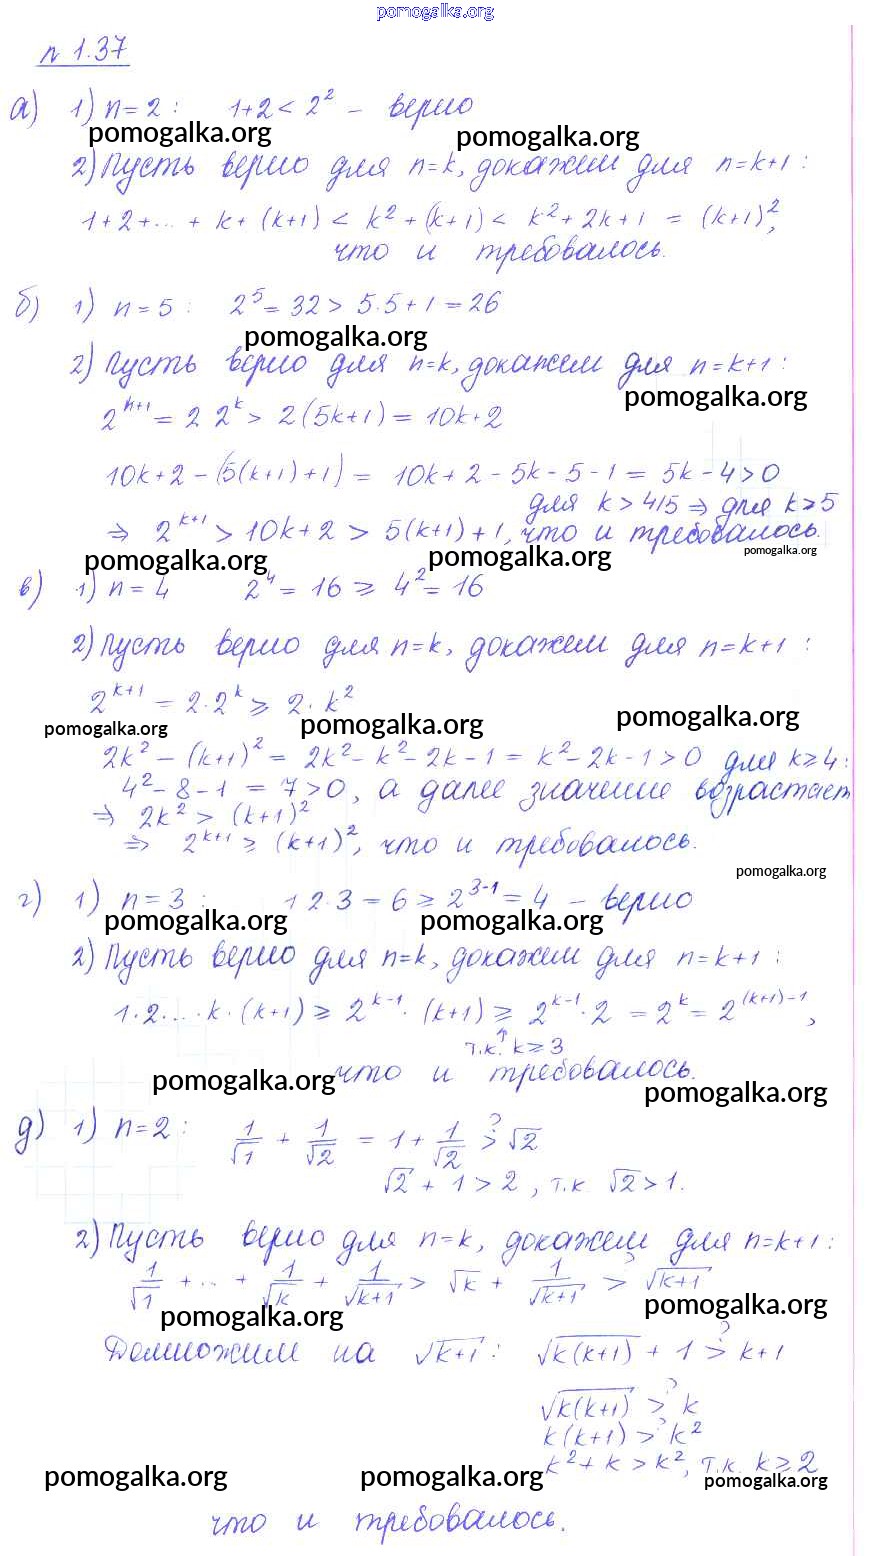 pomogalka.org
n 1.37
а) 1) n=2 : 1+2 < 2² – верно
pomogalka.org pomogalka.org
2) Пусть верно для n=k, докажем для n=k+1 :
1+2+...+k+(k+1) < k²+(k+1) < k²+2k+1 = (k+1)²,
что и требовалось.
б) 1) n=5 : 2⁵=32 > 5·5+1=26
pomogalka.org
2) Пусть верно для n=k, докажем для n=k+1 :
pomogalka.org
2ⁿ⁺¹ = 2 2ᵏ > 2(5k+1) = 10k+2
10k+2 – (5(k+1)+1) = 10k+2-5k-5-1 = 5k-4>0
для k > 4/5 ⇒ для k≥5
⇒ 2ᵏ⁺¹ > 10k+2 > 5(k+1)+1, что и требовалось.
pomogalka.org pomogalka.org pomogalka.org
в) 1) n=4 2⁴=16 ≥ 4²=16
2) Пусть верно для n=k, докажем для n=k+1 :
2ᵏ⁺¹ = 2·2ᵏ ≥ 2·k²
pomogalka.org pomogalka.org pomogalka.org
2k² – (k+1)² = 2k²-k²-2k-1 = k²-2k-1>0 для k≥4:
4²-8-1 = 7>0, а далее значение возрастает
⇒ 2k² > (k+1)²
⇒ 2ᵏ⁺¹ ≥ (k+1)², что и требовалось.
pomogalka.org
г) 1) n=3 : 1 2·3=6 ≥ 2³⁻¹=4 – верно
pomogalka.org pomogalka.org
2) Пусть верно для n=k, докажем для n=k+1 :
1·2·...·k·(k+1) ≥ 2ᵏ⁻¹·(k+1) ≥ 2ᵏ⁻¹·2 = 2ᵏ = 2⁽ᵏ⁺¹⁾⁻¹,
↑
т.к. k≥3
что и требовалось.
pomogalka.org pomogalka.org
д) 1) n=2 : 1/√1 + 1/√2 = 1 + 1/√2 >? √2
√2 + 1 > 2, т.к √2>1.
2) Пусть верно для n=k, докажем для n=k+1 :
1/√1 +...+ 1/√k + 1/√(k+1) > √k + 1/√(k+1) >? √(k+1)
pomogalka.org pomogalka.org
Домножим на √(k+1) : √(k(k+1)) + 1 >? k+1
√(k(k+1)) >? k
k(k+1) >? k²
k²+k > k², т.к. k≥2
pomogalka.org pomogalka.org pomogalka.org
что и требовалось.